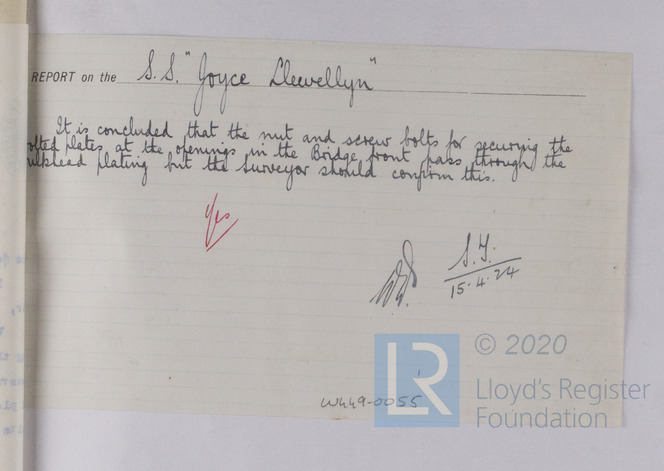 REPORT on the S.S. "Joyce Llewellyn"
It is concluded that the nut and screw bolts for securing the
olted plates at the openings in the Bridge front pass through the
ulkhead plating but the Surveyor should confirm this.
Yes
S.J.
15.4.24
W449-0055
LR
© 2020
Lloyd's Register
Foundation